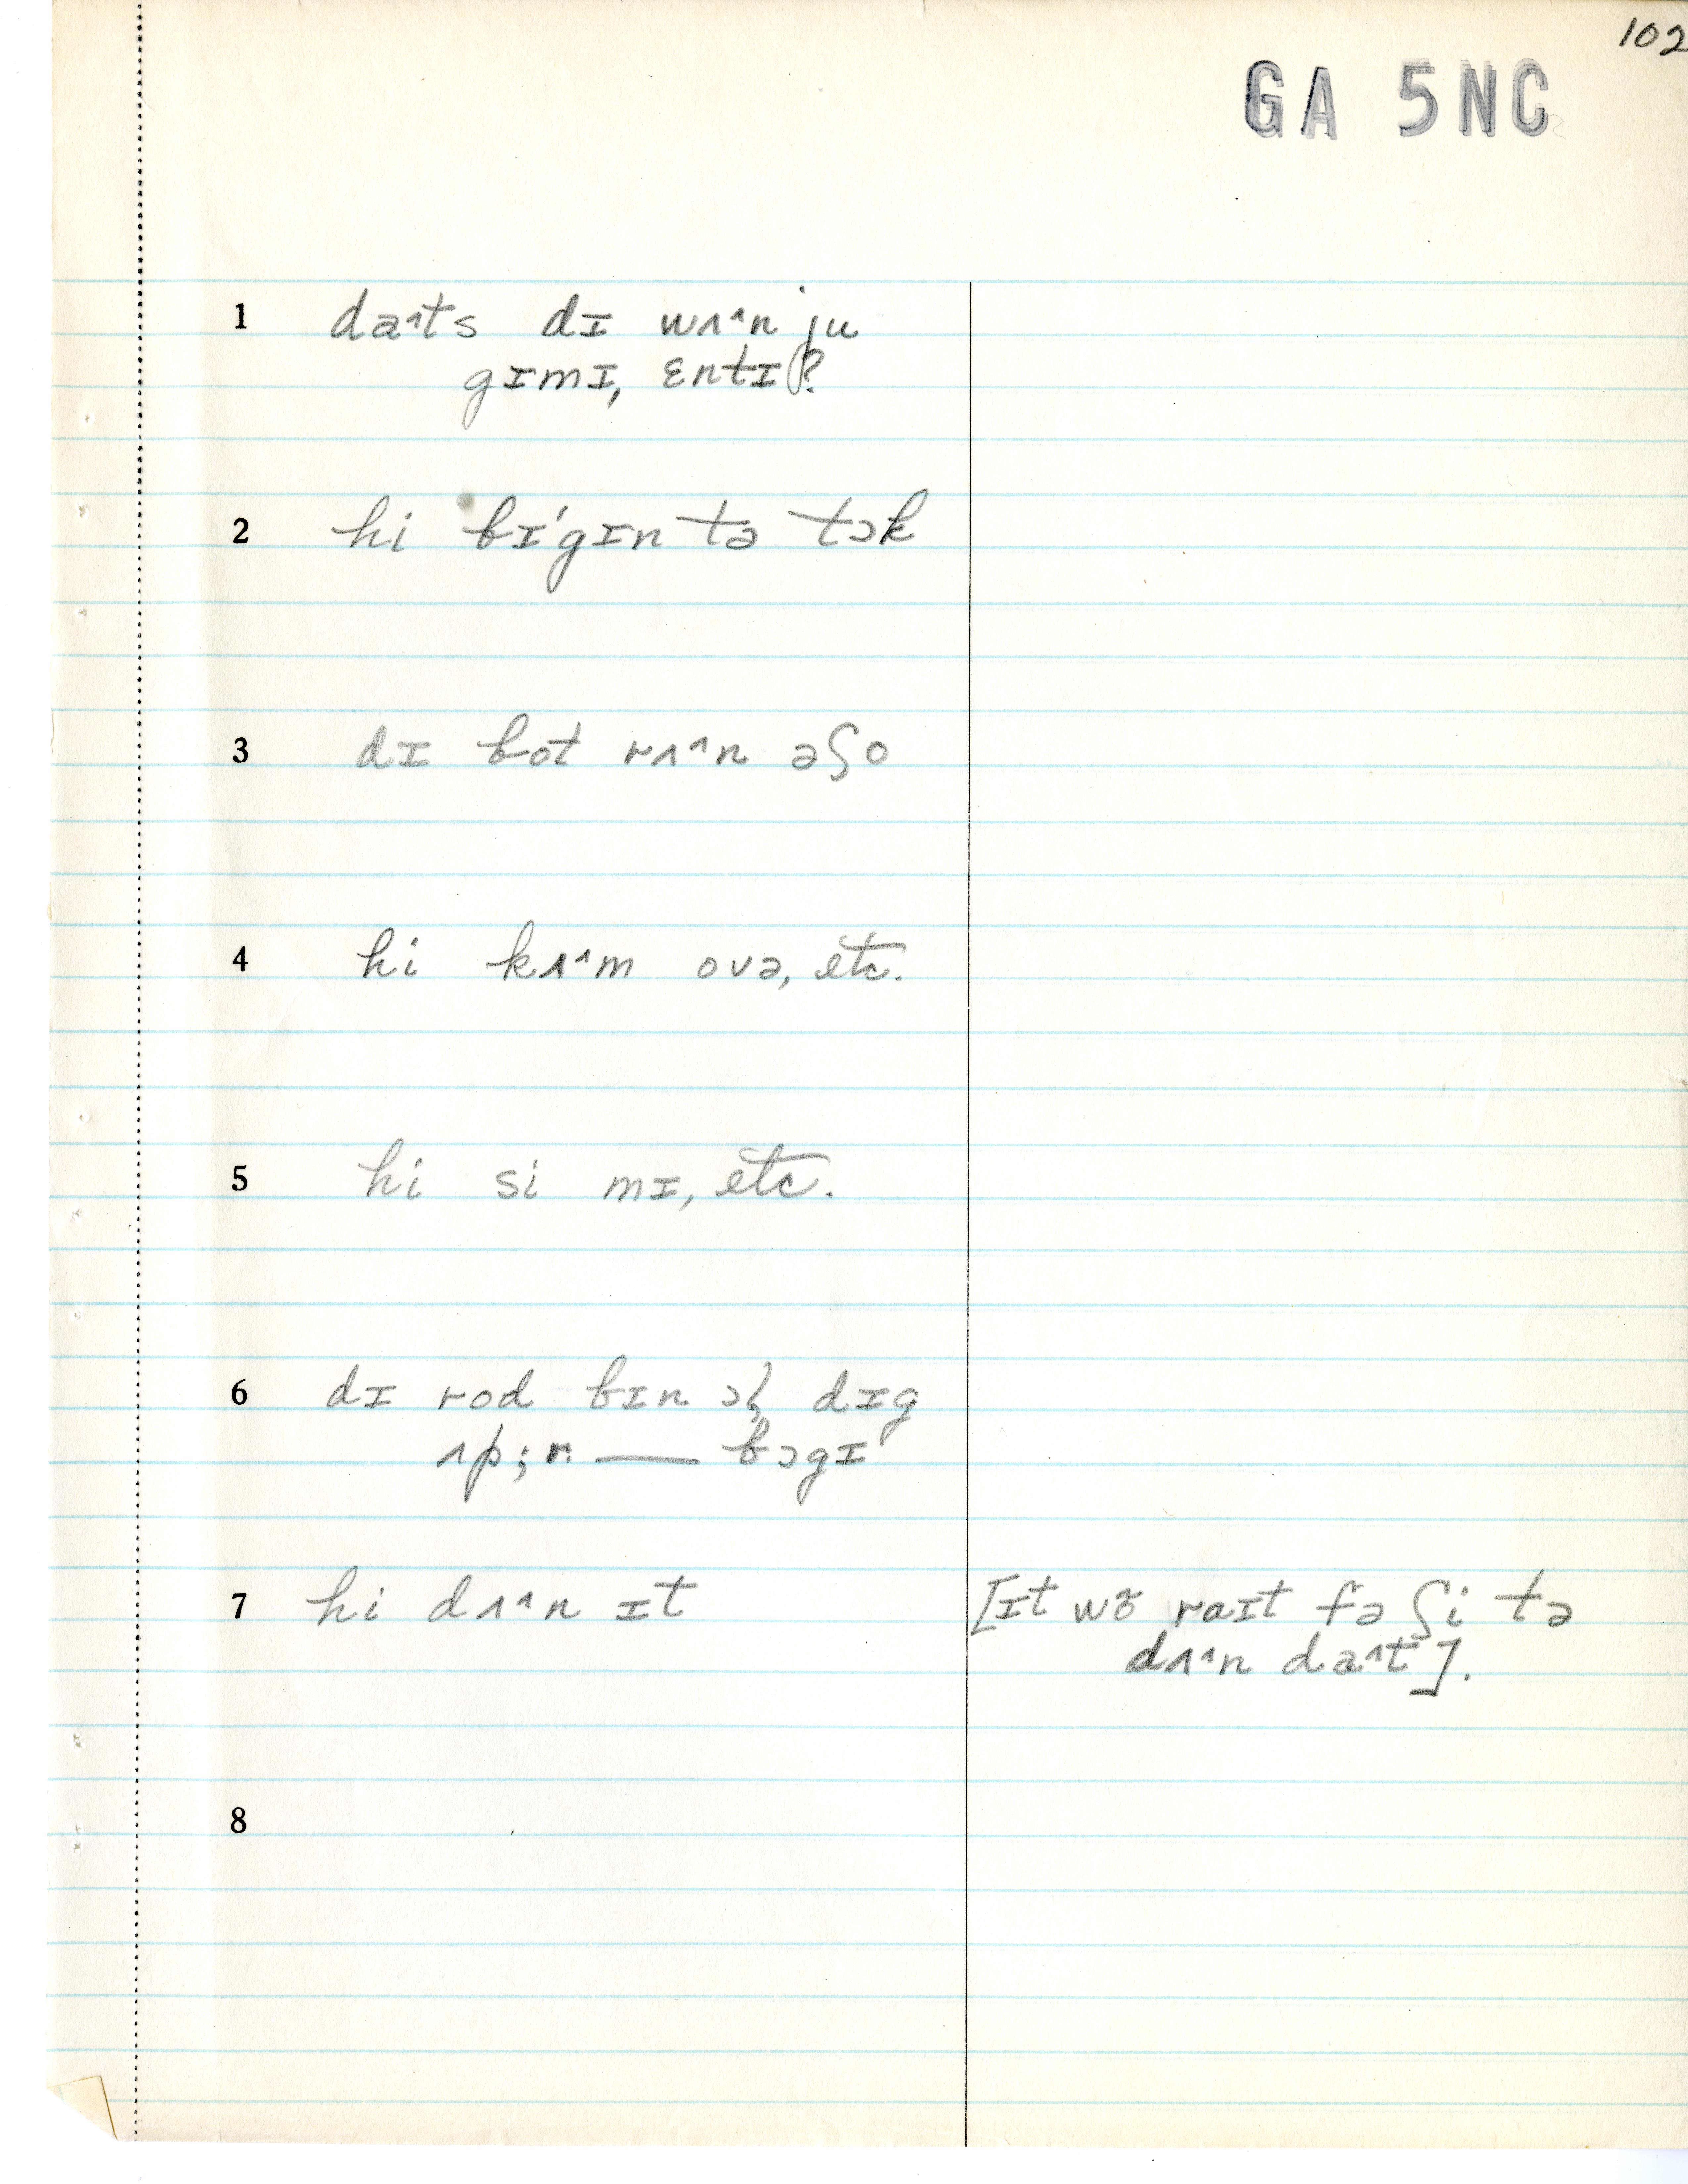 102
GA 5NC
1 da˄ts dɪ wʌ˄n ju
gɪmɪ, ɛntɪ?
2 hi bɪ'gɪn tə tɔk
3 dɪ bot rʌ˄n əʃo
4 hi kʌ˄m ovə, etc.
5 hi si mɪ, etc.
6 dɪ rod bɪn dɪg
ʌp; r. — bɔgɪ
7 hi dʌ˄n ɪt [ɪt wõ raɪt fə ʃi tə
dʌ˄n da˄t].
8